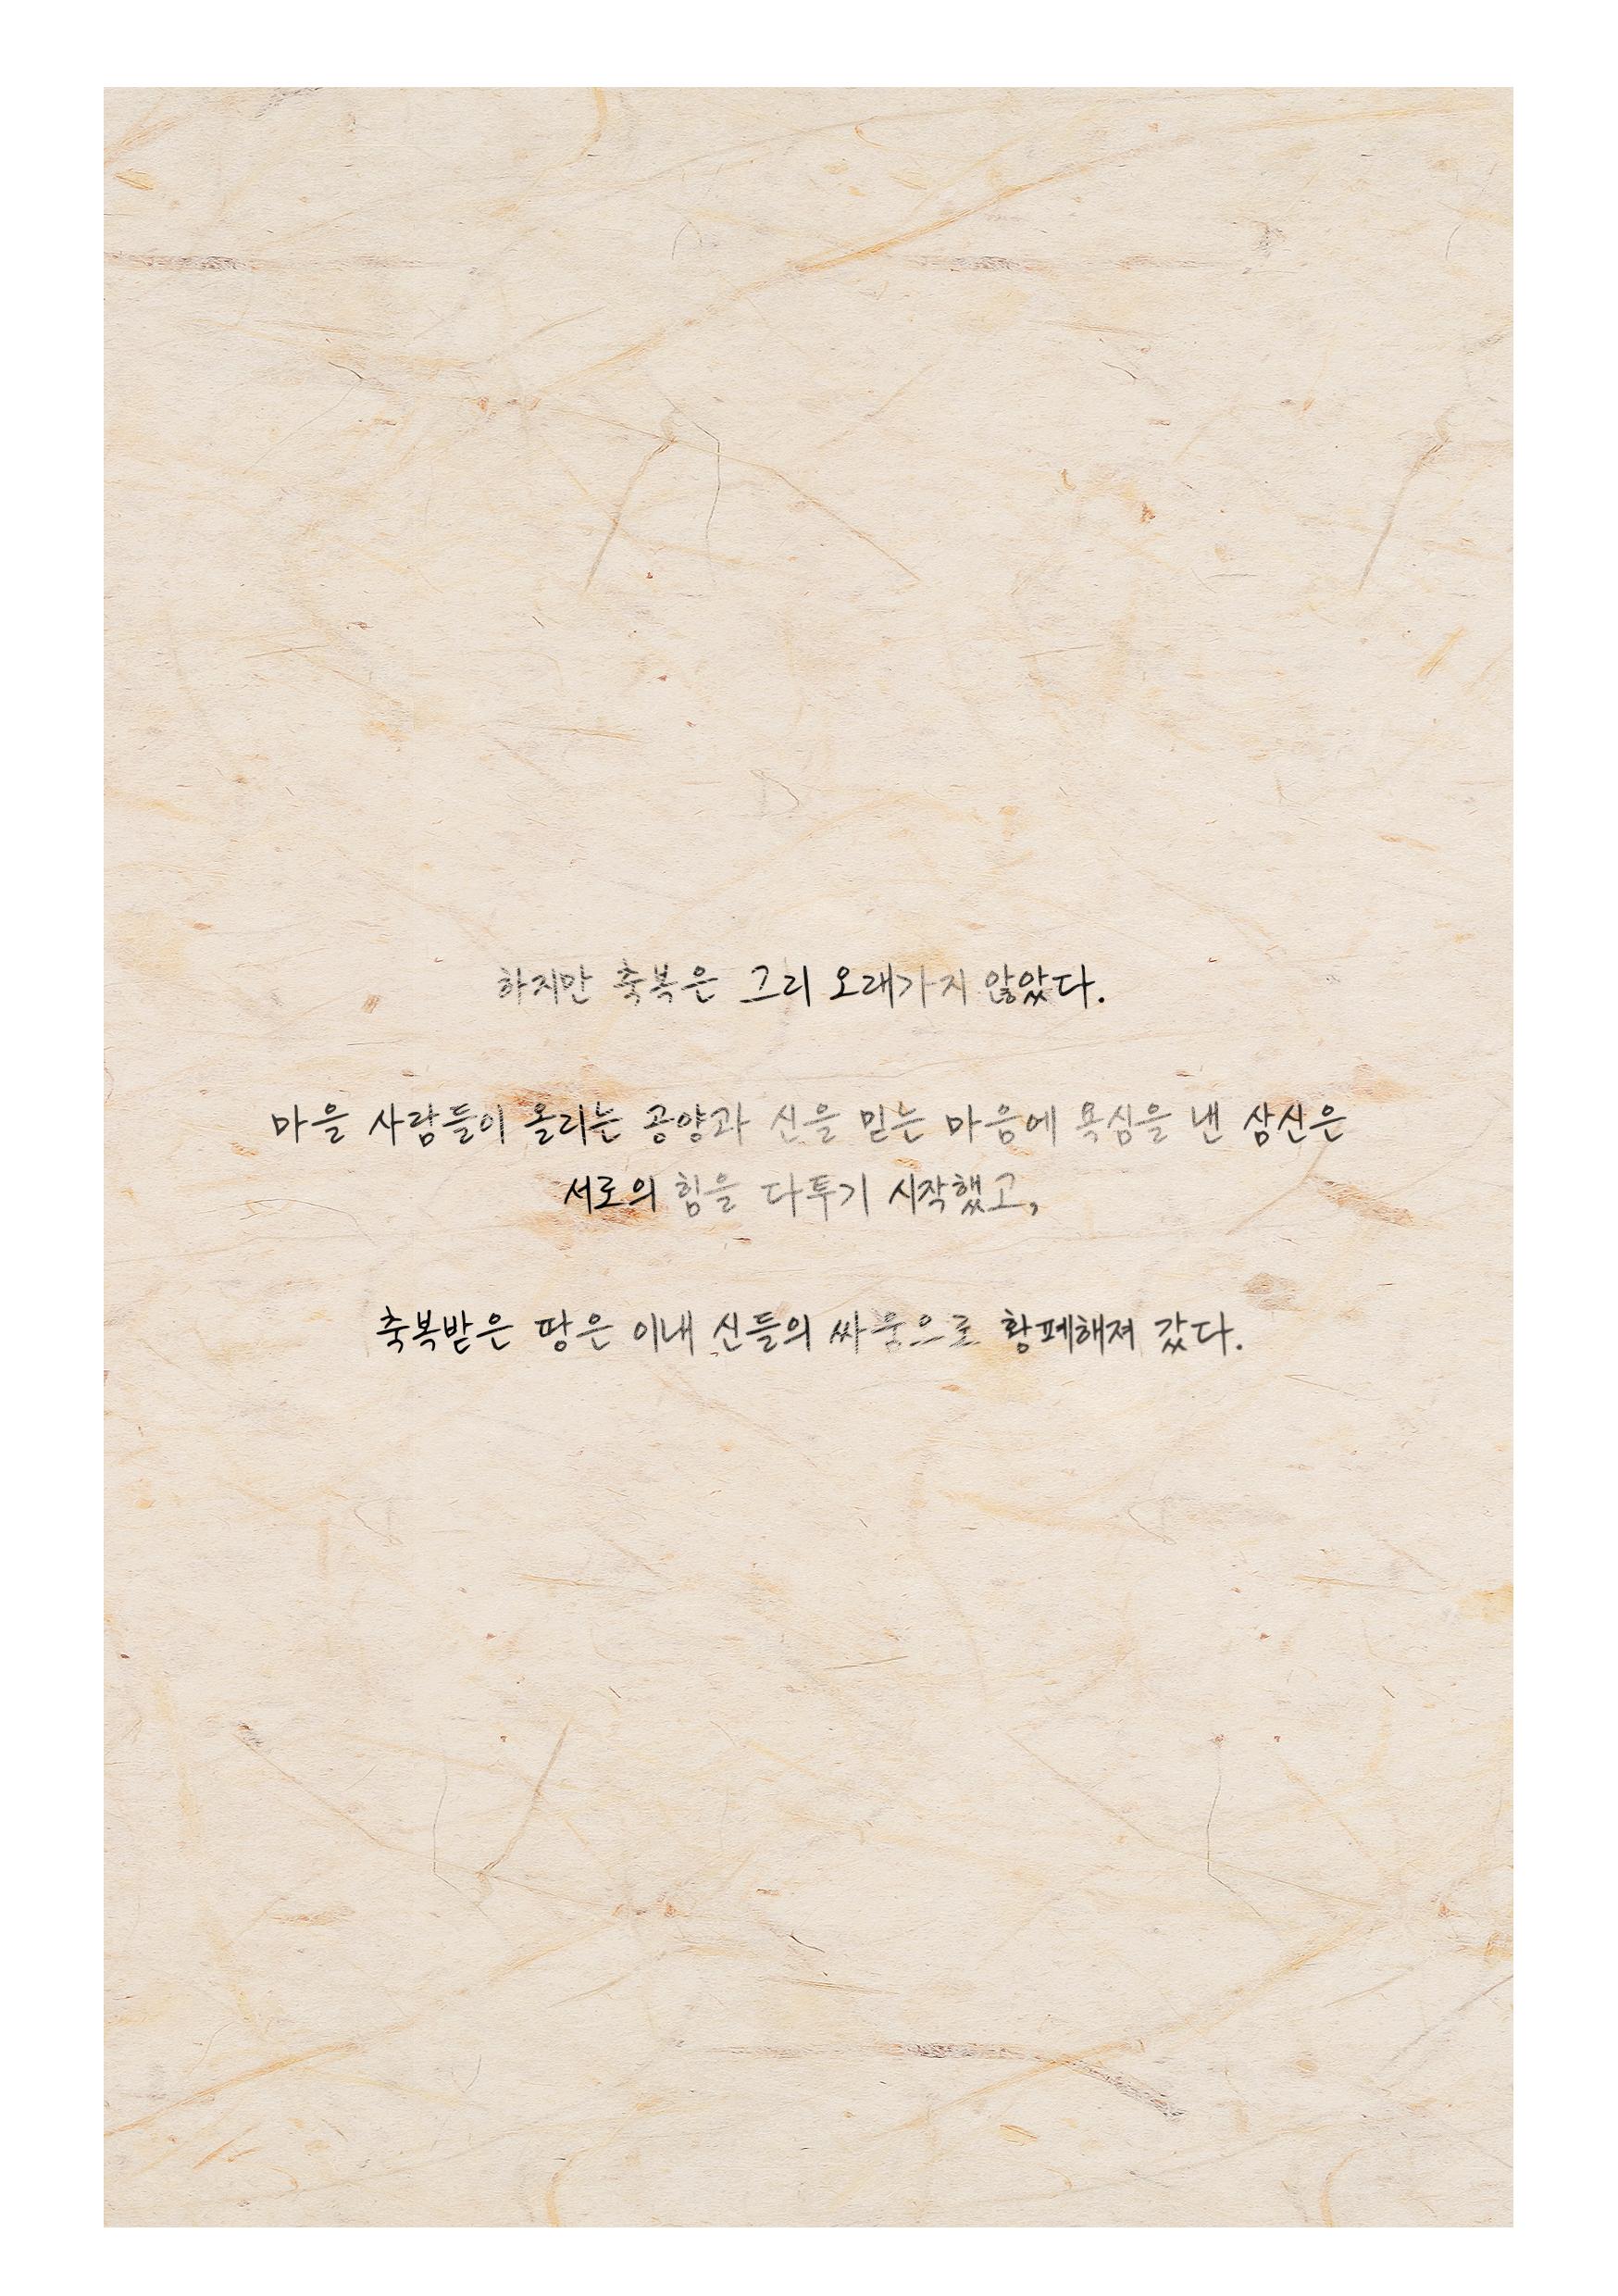 하지만 축복은 그리 오래가지 않았다.
마을 사람들이 올리는 공양과 신을 믿는 마음에 욕심을 낸 삼신은
서로의 힘을 다투기 시작했고,
축복받은 땅은 이내 신들의 싸움으로 황폐해져 갔다.